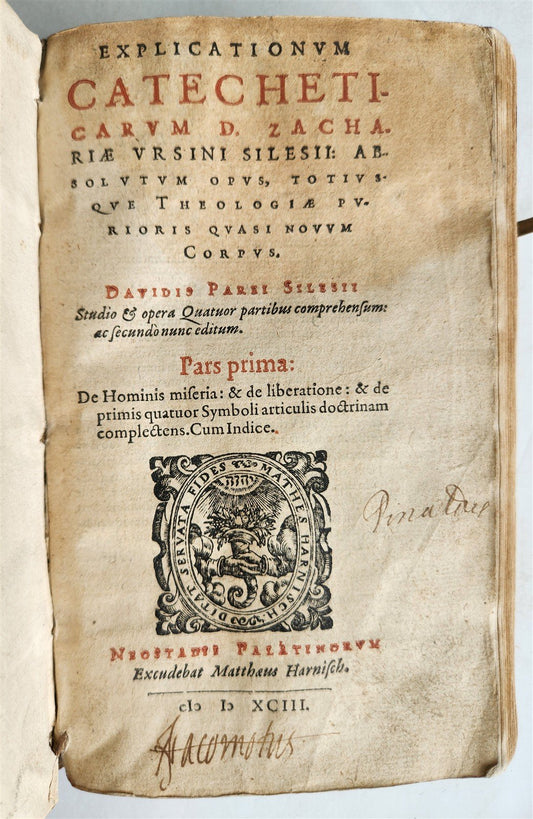 EXPLICATIONVM
CATECHETI-
CARVM D. ZACHA-
RIÆ VRSINI SILESII: AB-
SOLVTVM OPVS, TOTIVS-
QVE THEOLOGIÆ PV-
RIORIS QVASI NOVVM
CORPVS.
DAVIDIS PAREI SILESII
Studio & opera Quatuor partibus comprehenſum:
ac ſecundò nunc editum.
Pars prima:
De Hominis miſeria: & de liberatione: & de
primis quatuor Symboli articulis doctrinam
complectens. Cum Indice.
DITAT SERVATA FIDES MATHES HARNISCH
NEOSTADII PALATINORVM
Excudebat Matthæus Harniſch.
cIↄ Iↄ XCIII.
Jacomotus